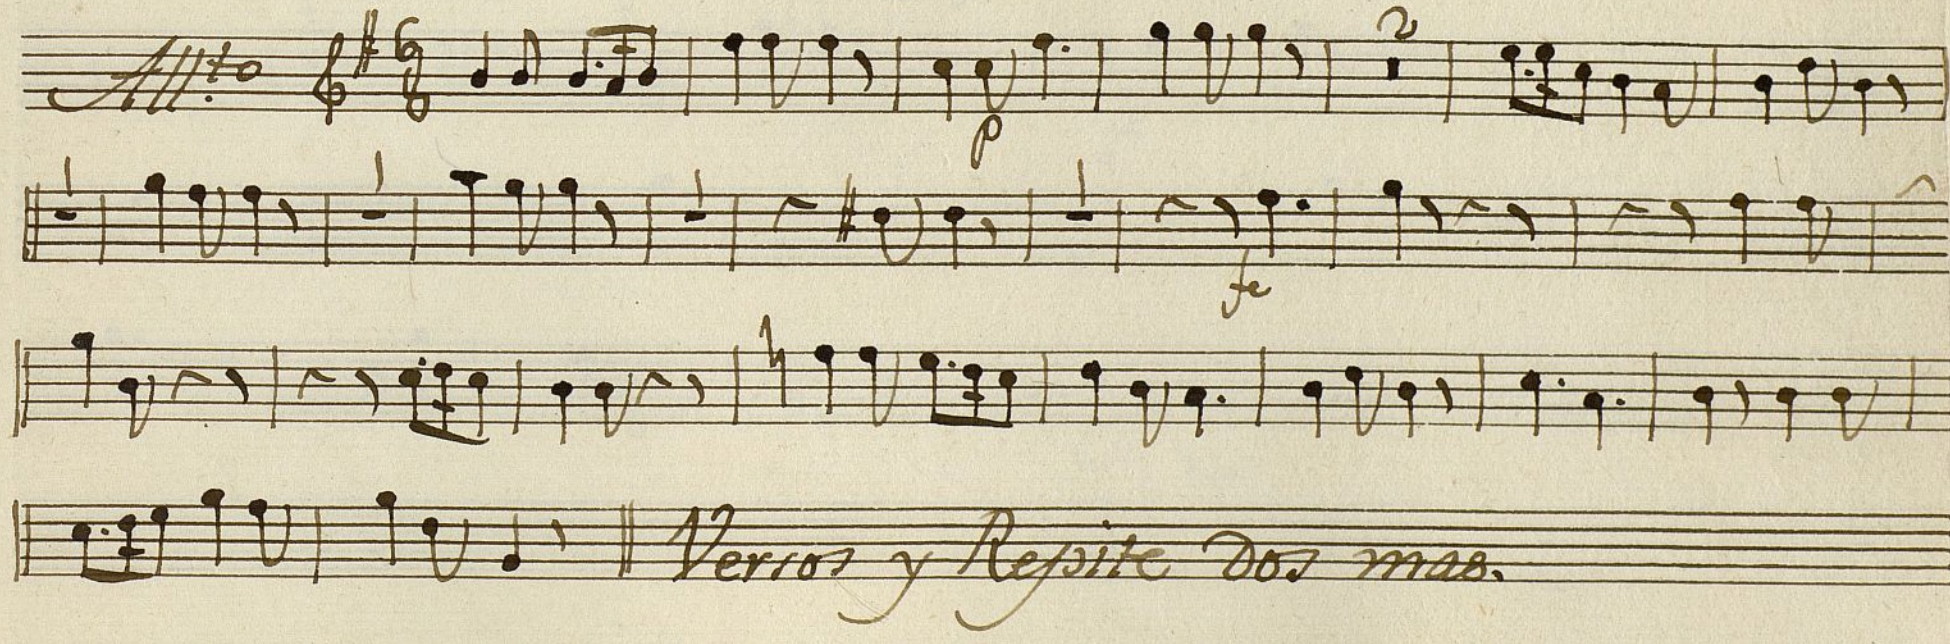 All.to 6 2
p
1 1 1 1
fe
Versos y Repite Dos mas.